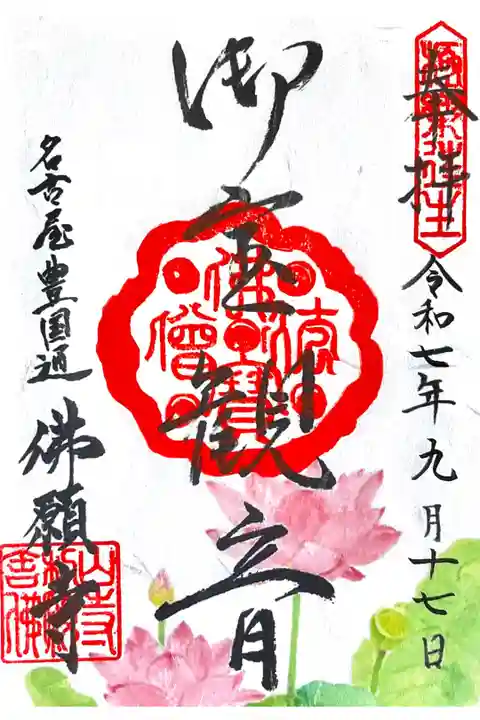 奉拝
令和七年九月十七日
御
観音
佛法僧寶
名古屋豊国通
佛願寺